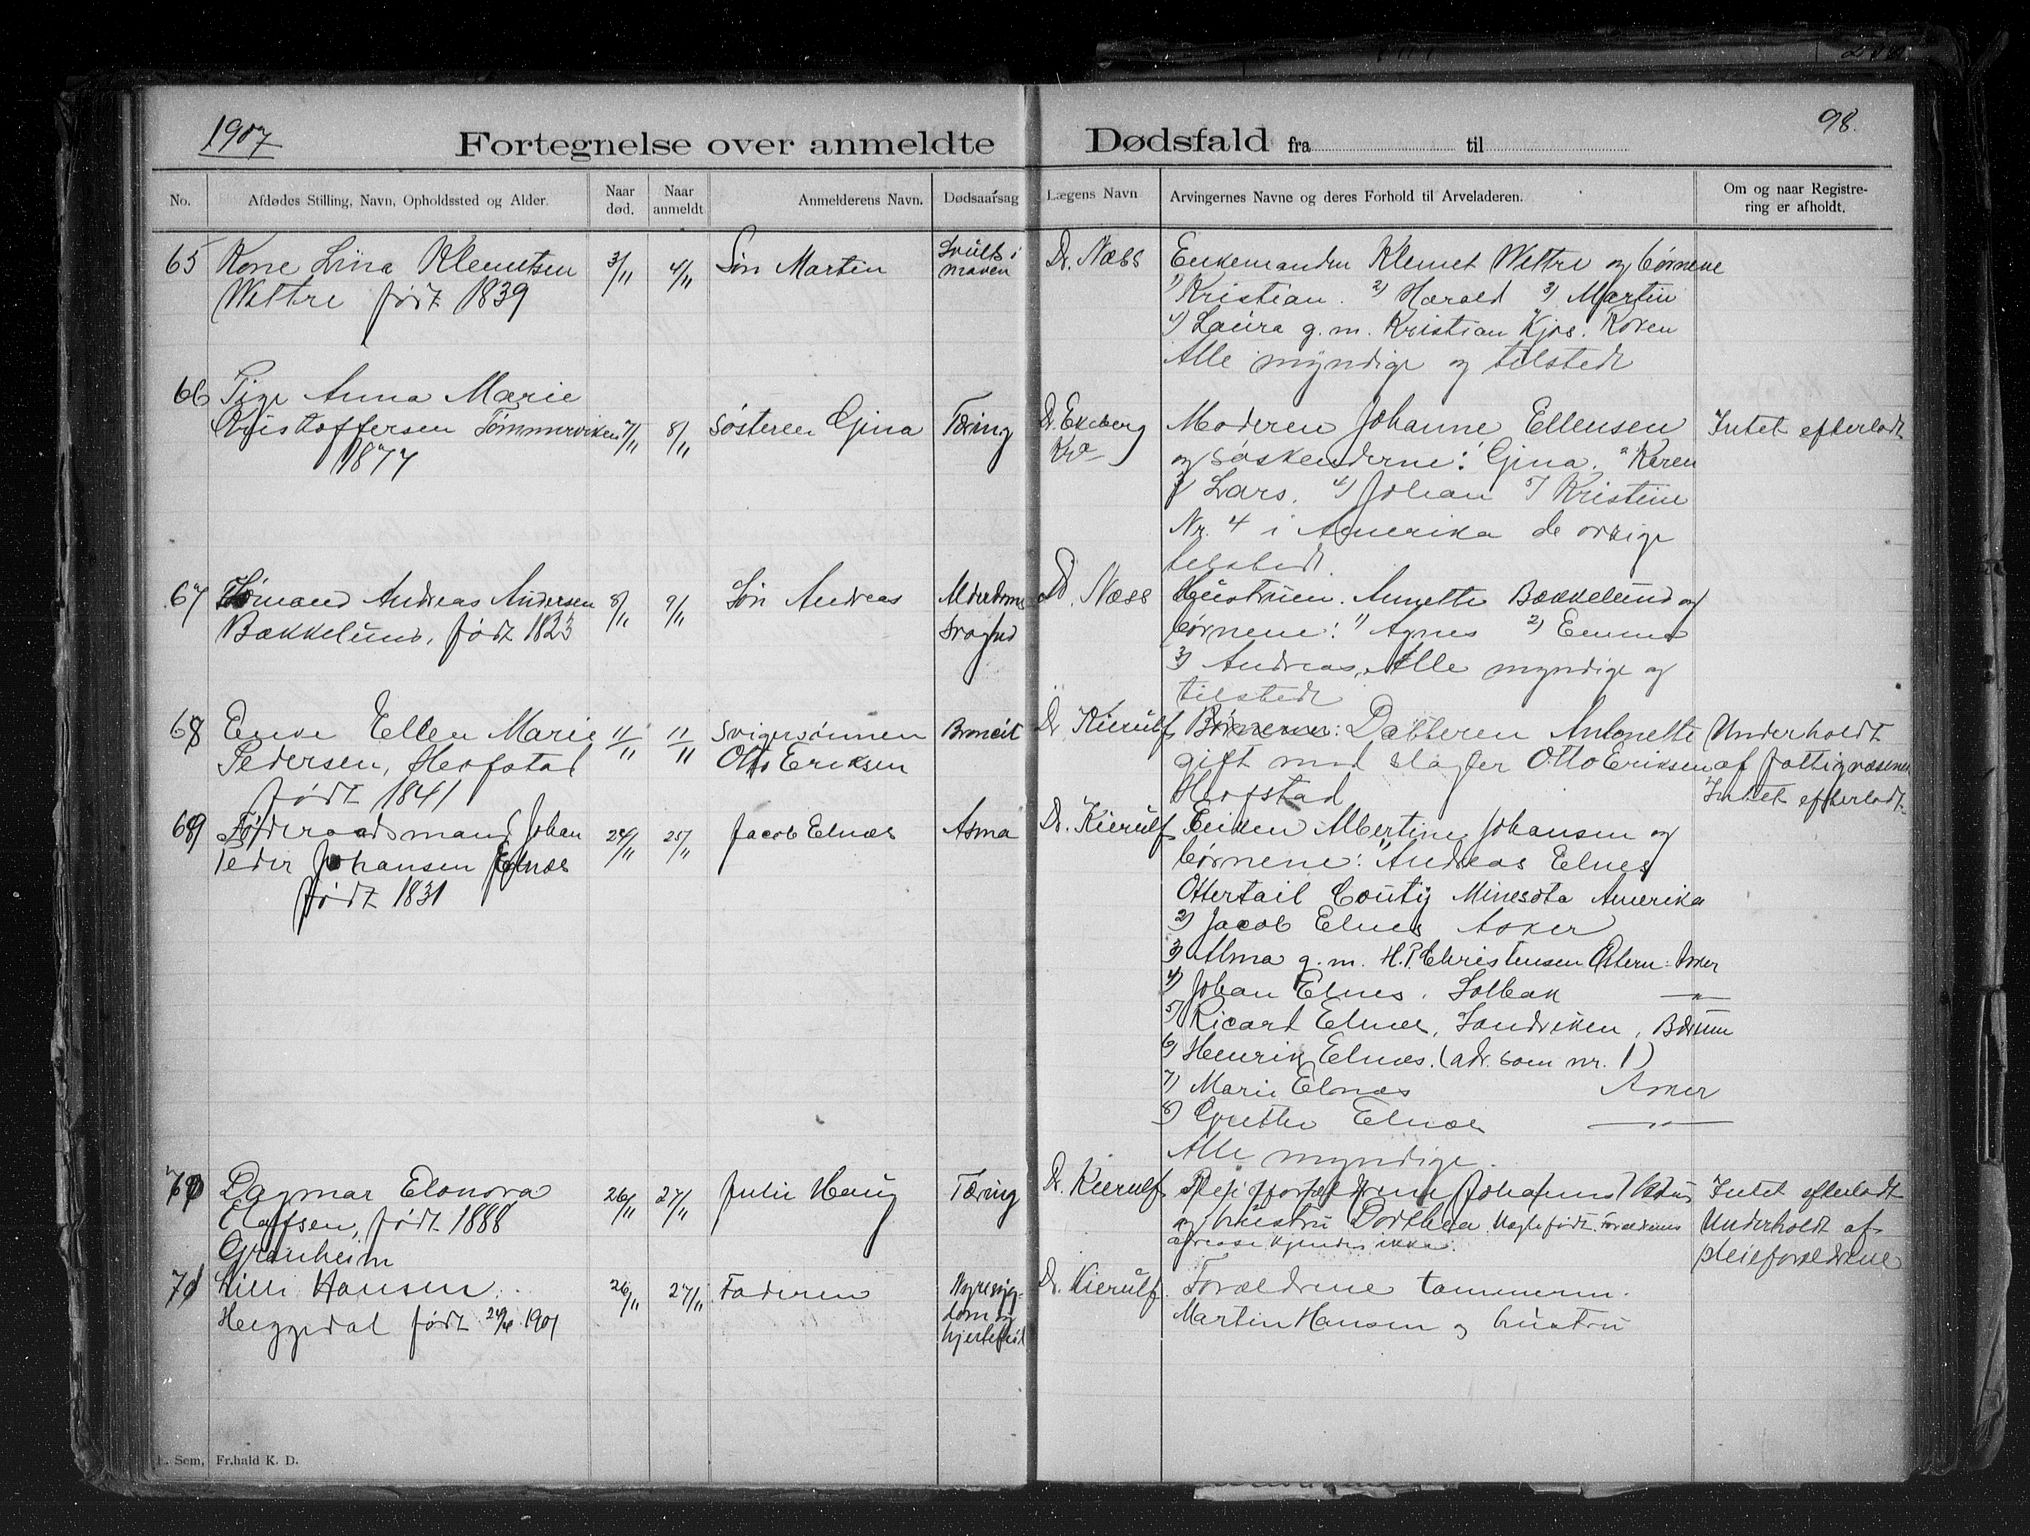 1907
98.
Fortegnelse over anmeldte Dødsfald fra til
No. Afdødes Stilling, Navn, Opholdssted og Alder. Naar død. Naar anmeldt Anmelderens Navn. Dødsaarsag Lægens Navn Arvingernes Navne og deres Forhold til Arveladeren. Om og naar Registrering er afholdt.
65 Kone Lina Klemetsen 3/11 4/11 Søn Martin Svulst i maven Dr. Næss Enkemanden Klemet Wettre og børnene
Wettre født 1839 1) Kristian. 2) Harald 3) Martin
4) Laura g.m. Kristian Kjos. Røken
Alle myndige og tilstede
66 Pige Anna Marie
Kristoffersen Tømmerviken 7/11 8/11 Søsteren Gina Tæring Dr. Ekeberg Moderen Johanne Ellensen Intet efterladt
1877 Kra og søskenderne: Gina. 2 Karen
3) Lars. 4) Johan 5) Kristine
Nr. 4 i Amerika de øvrige
tilstede.
67 Andreas Andersen 8/11 9/11 Søn Andreas Alderdoms Dr. Næss Hustruen. Annette Bækkelund og
Bækkelund, født 1823 svaghed børnene: 1) Agnes 2) Emma
3) Andreas, Alle myndige og
tilstede
68 Enke Ellen Marie 11/11 11/11 Svigersønnen Broncit Dr Kierulf Børnene: Datteren Antonette Underholdt
Pedersen, Hofstad Otto Eriksen gift med slagter Otto Eriksen af fattigvæsenet
født 1841 Hofstad Intet efterladt
69 Føderaadsmand Johan 24/11 25/11 Jacob Elnæs Asma Dr. Kierulf Enken Albertine Johansen og
Peder Johansen Elnæs børnene: 1) Andreas Elnes
født 1831 Ottertail Couty Minesota Amerika
2) Jacob Elnes Asker
3) Alma g.m. H.P. Christensen Østern. Asker
4) Johan Elnes. Solbak — " —
5) Ricard Elnes, Sandviken, Bærum
6) Henrik Elnæs. (adr. som nr. 1)
7) Marie Elnæs Asker
8) Grethe Elnæs — " —
Alle myndige.
70 Dagmar Elonora 26/11 27/11 Julie Haug Tæring Dr. Kierulf Pleieforældrene Johannes Intet efterladt
Olafsen, født 1888 og hustru Dorthea Uægtefødt. Forældrenes Underholdt af
Granheim adresse kjendes ikke. pleieforældrene
71 Lilli Hansen 26/11 27/11 Faderen Nyresygdom og hjertefeil Dr. Kierulf. Forældrene tømmerm.
Heggedal født 1901 Martin Hansen og hustru
E. Sem, Fr.hald K. D.